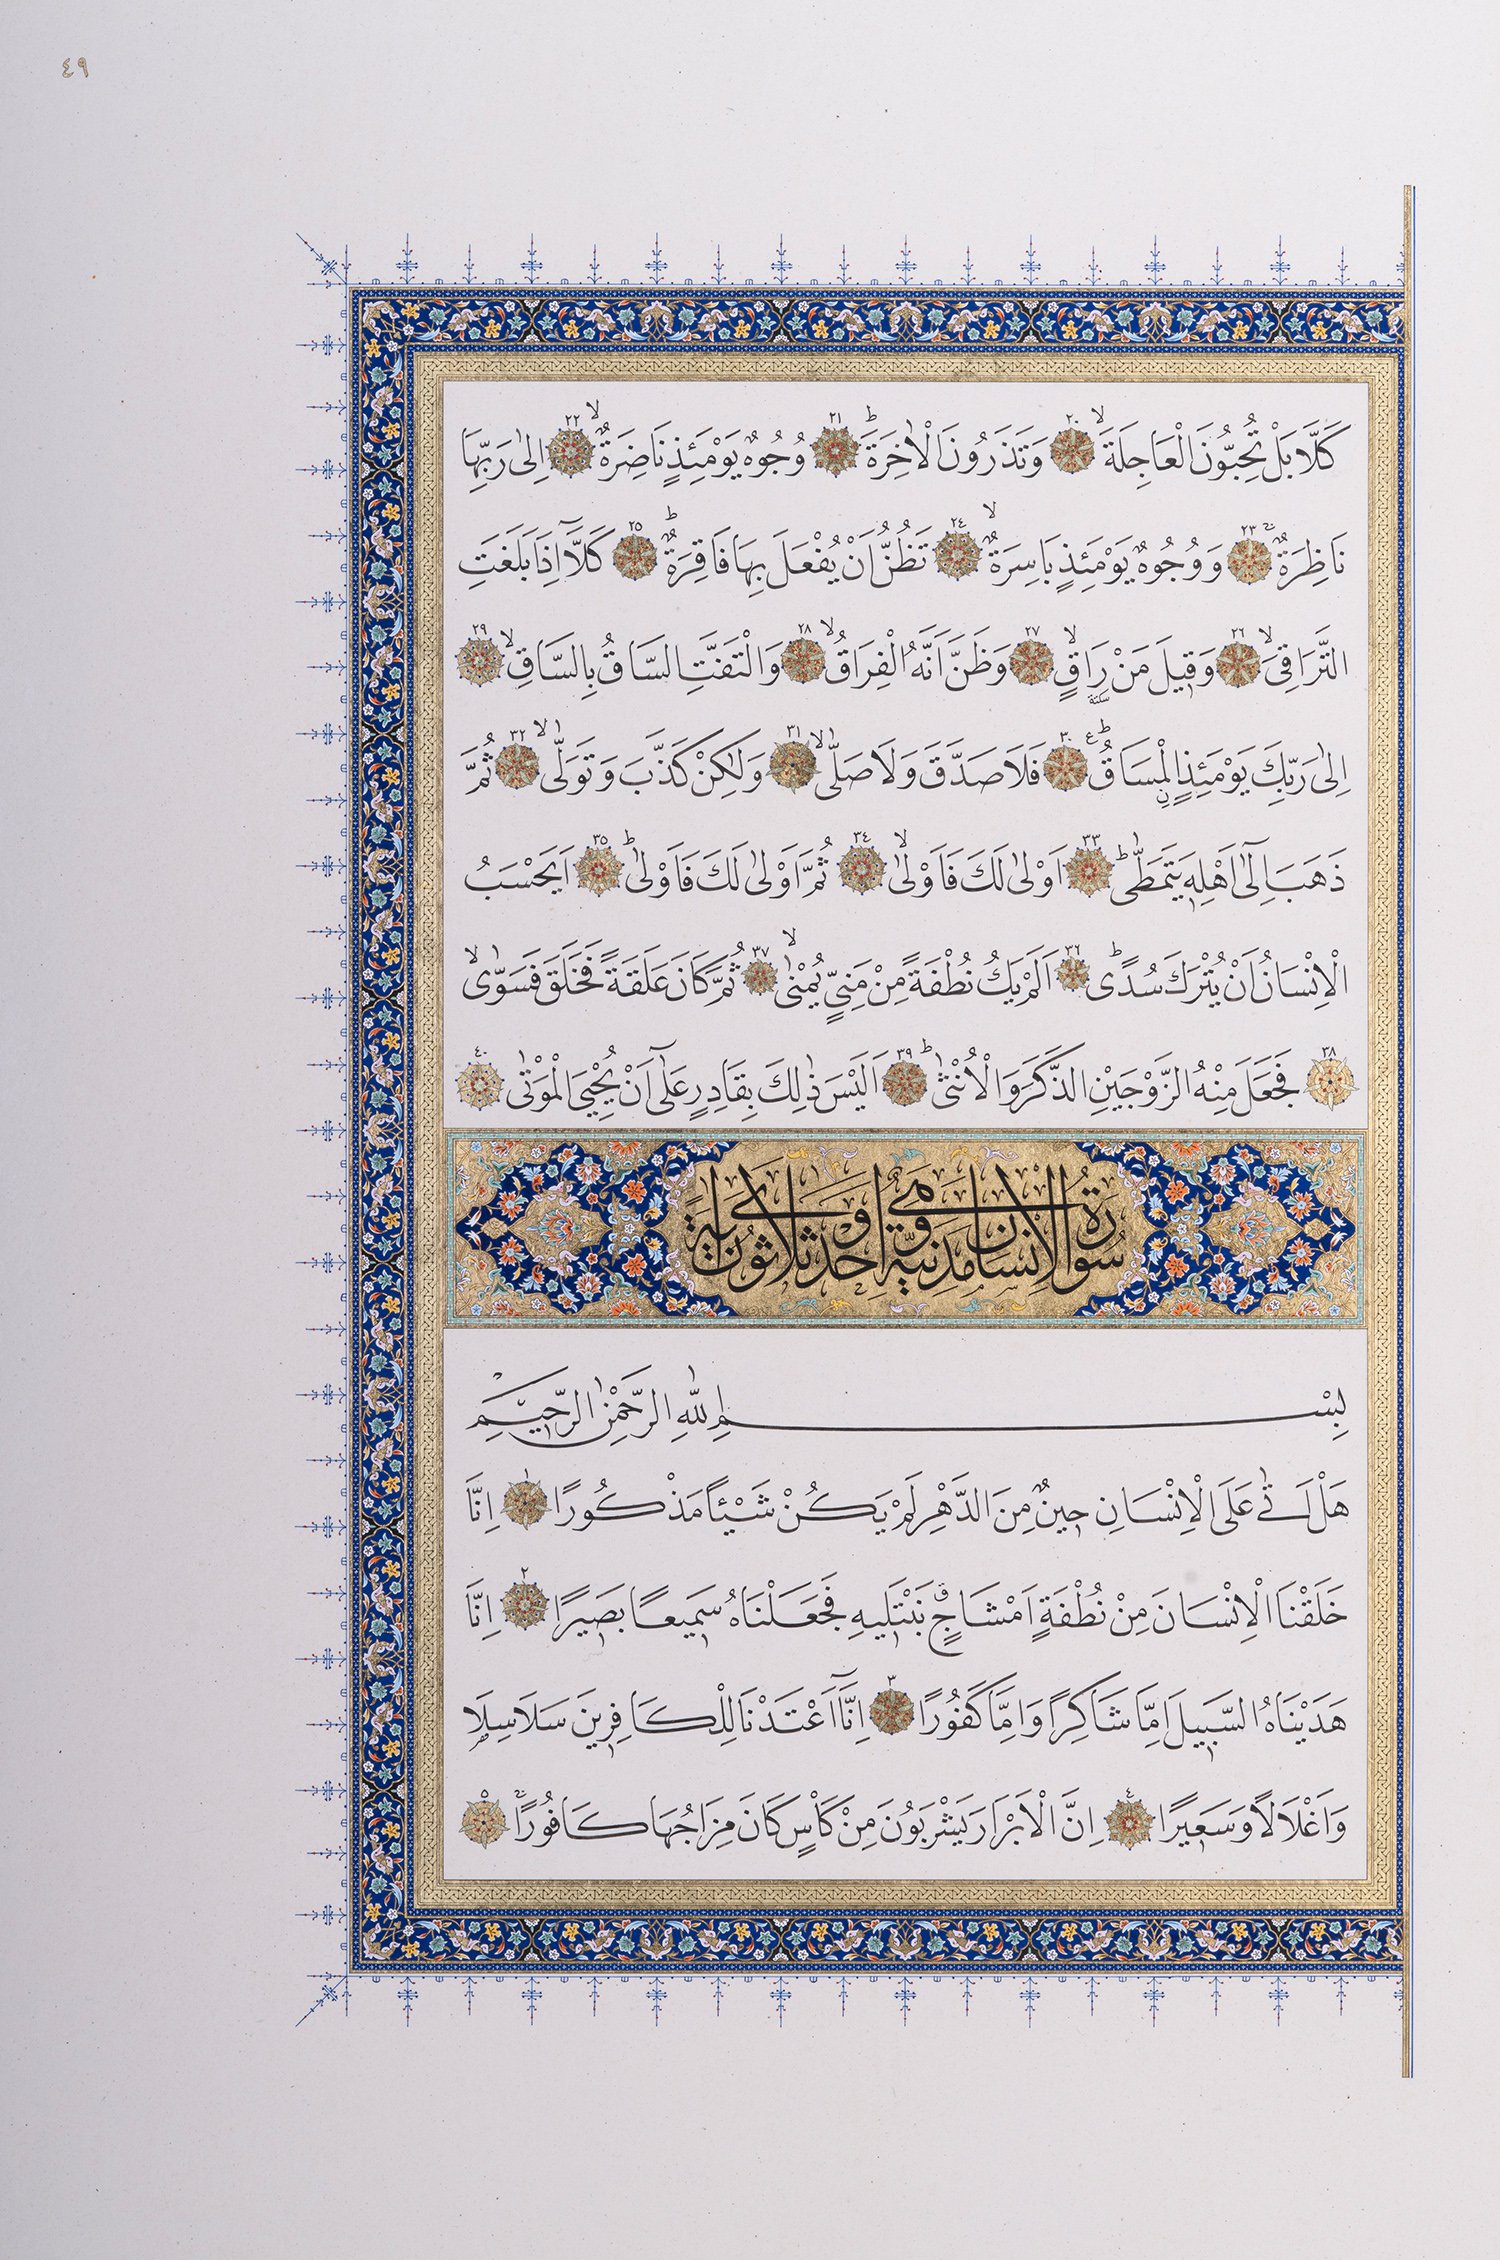 ٤٩
كَلَّا بَلْ تُحِبُّونَ الْعَاجِلَةَ ۙ ٢٠ وَتَذَرُونَ الْاٰخِرَةَ ۜ ٢١ وُجُوهٌ يَوْمَئِذٍ نَاضِرَةٌ ۙ ٢٢ اِلٰى رَبِّهَا
نَاظِرَةٌ ٢٣ وَوُجُوهٌ يَوْمَئِذٍ بَاسِرَةٌ ۙ ٢٤ تَظُنُّ اَنْ يُفْعَلَ بِهَا فَاقِرَةٌ ۜ ٢٥ كَلَّٓا اِذَا بَلَغَتِ
التَّرَاقِيَ ۙ ٢٦ وَقِيلَ مَنْ رَاقٍ ۙ ٢٧ وَظَنَّ اَنَّهُ الْفِرَاقُ ۙ ٢٨ وَالْتَفَّتِ السَّاقُ بِالسَّاقِ ۙ ٢٩
اِلٰى رَبِّكَ يَوْمَئِذٍ الْمَسَاقُ ۜ ع ٣٠ فَلَا صَدَّقَ وَلَا صَلّٰى ۙ ٣١ وَلٰكِنْ كَذَّبَ وَتَوَلّٰى ۙ ٣٢ ثُمَّ
ذَهَبَ اِلٰٓى اَهْلِهِ يَتَمَطّٰى ۜ ٣٣ اَوْلٰى لَكَ فَاَوْلٰى ۙ ٣٤ ثُمَّ اَوْلٰى لَكَ فَاَوْلٰى ۜ ٣٥ اَيَحْسَبُ
الْاِنْسَانُ اَنْ يُتْرَكَ سُدًى ۜ ٣٦ اَلَمْ يَكُ نُطْفَةً مِنْ مَنِيٍّ يُمْنٰى ۙ ٣٧ ثُمَّ كَانَ عَلَقَةً فَخَلَقَ فَسَوّٰى ۙ
٣٨ فَجَعَلَ مِنْهُ الزَّوْجَيْنِ الذَّكَرَ وَالْاُنْثٰى ۜ ٣٩ اَلَيْسَ ذٰلِكَ بِقَادِرٍ عَلٰٓى اَنْ يُحْيِيَ الْمَوْتٰى ٤٠
سُورَةُ الْاِنْسَانِ مَدَنِيَّةٌ وَهِيَ اِحْدٰى وَثَلَاثُونَ اٰيَةً
بِسْمِ اللّٰهِ الرَّحْمٰنِ الرَّحِيمِ
هَلْ اَتٰى عَلَى الْاِنْسَانِ حِينٌ مِنَ الدَّهْرِ لَمْ يَكُنْ شَيْئًا مَذْكُورًا ١ اِنَّا
خَلَقْنَا الْاِنْسَانَ مِنْ نُطْفَةٍ اَمْشَاجٍ ۗ نَبْتَلِيهِ فَجَعَلْنَاهُ سَمِيعًا بَصِيرًا ٢ اِنَّا
هَدَيْنَاهُ السَّبِيلَ اِمَّا شَاكِرًا وَاِمَّا كَفُورًا ٣ اِنَّٓا اَعْتَدْنَا لِلْكَافِرِينَ سَلَاسِلَا۬
وَاَغْلَالًا وَسَعِيرًا ٤ اِنَّ الْاَبْرَارَ يَشْرَبُونَ مِنْ كَأْسٍ كَانَ مِزَاجُهَا كَافُورًا ٥